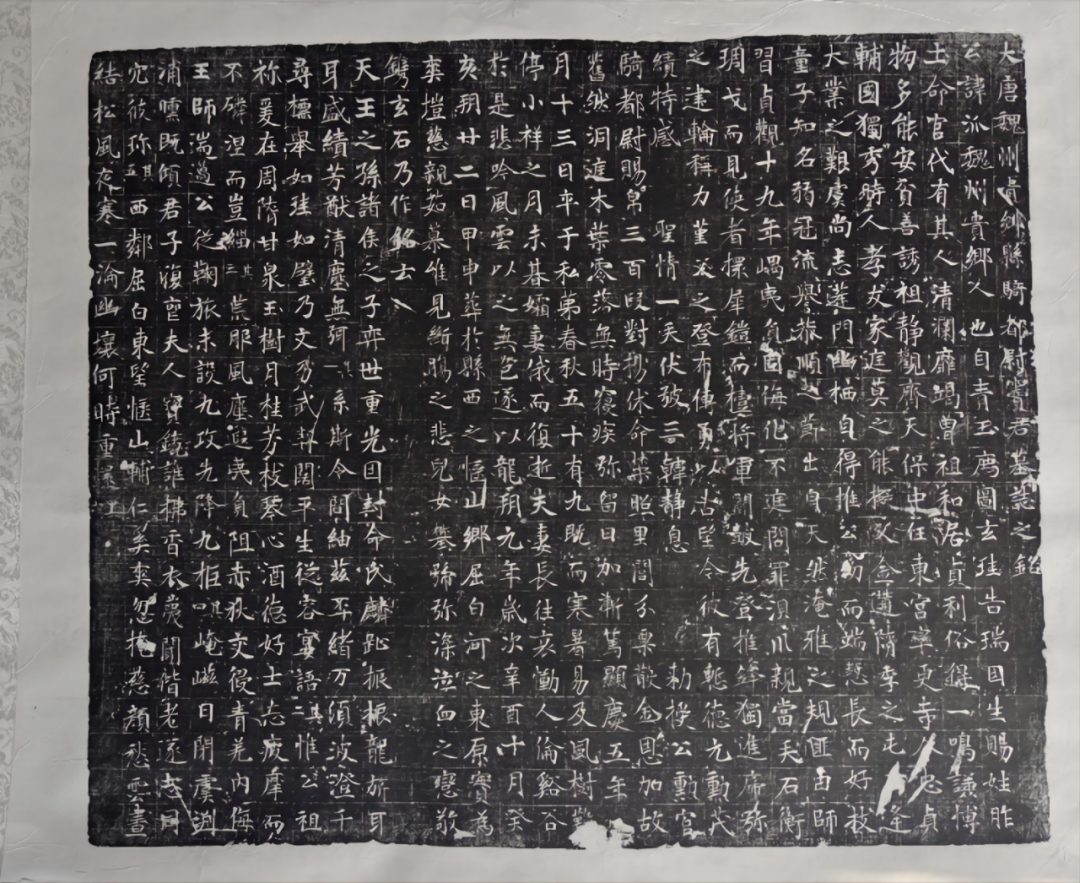 大唐魏州貴鄉縣騎都尉賈君墓誌之銘
公諱泒魏州貴鄉人也自青玉膺圖玄珪告瑞因生賜姓胙
土命官代有其人清瀾靡竭曾祖和居貞利俗鏘一鳴謙博
物多能安貧善誘祖靜觀齊天保中任東宮率更寺忠貞
輔國獨秀時人孝友家庭莫之能擬父隋季之屯
大業之艱虞尚志蓬門幽栖自得推公幼而端慤長而好技
童子知名弱冠流譽恭順之節出自天然淹雅之規匪由師
習貞觀十九年嵎夷負固海化不庭問罪須爪親當矢石衡
琱戈而見使者擐犀鎧而檀將軍開敵先登推鋒獨進席弥
之連輪稱力堇父之登布傳勇以古望今彼有慙德元勳茂
績特感聖情一天伏弢三韓靜息勑授公勳官
騎都尉賜帛三百段對揚休命榮照里閭分粟散金恩加故
舊然洞進木葉零落無時寢疾弥留日加漸篤顯慶五年
月十三日卒于私第春秋五十有九既而寒暑易及風樹
停小祥之月未朞孀妻俄而復逝夫妻長往哀慟人倫谿谷
於是悲吟風雲以之無色遂以龍朔元年歲次辛酉十月癸
亥朔廿二日甲申葬於縣西之愜山鄉屈白河之東原賓為
奕愷慈親茹慕唯見之悲兒女攀號弥深泣血之戀敬
鐫玄石乃作銘云
天王之孫諸侯之子弈世重光因封命氏麟趾振振龍旂耳
耳盛績芳猷清塵無弭其一系斯令問紬茲平緒万頃波澄千
尋標舉如珪如璧乃文乃武契闊平生德容寔語其二惟公祖
祢爰在周隋廿泉玉樹月桂芳枝琴心酒德好士忘疲摩而
不磷涅而豈緇其三荒服風塵島夷負阻赤狄交侵青羌內侮
王師遄邁公從鞠旅未設九攻先降九柜其四崦嵫日閉虞淵
浦曛既傾君子復喪夫人寶鏡誰拂香衣夐聞偕老遂志同
穴彼弥其五西鄰屈白東望愜山輔仁奚爽忽掩慈顏愁雲晝
結松風夜寒一淪幽壤何時重